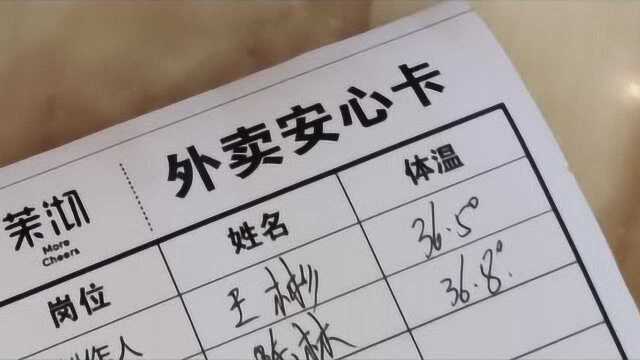 外卖安心卡
茉沏
More
Cheers
岗位 姓名 体温
王彬 36.5°
作人 陈林 36.8°